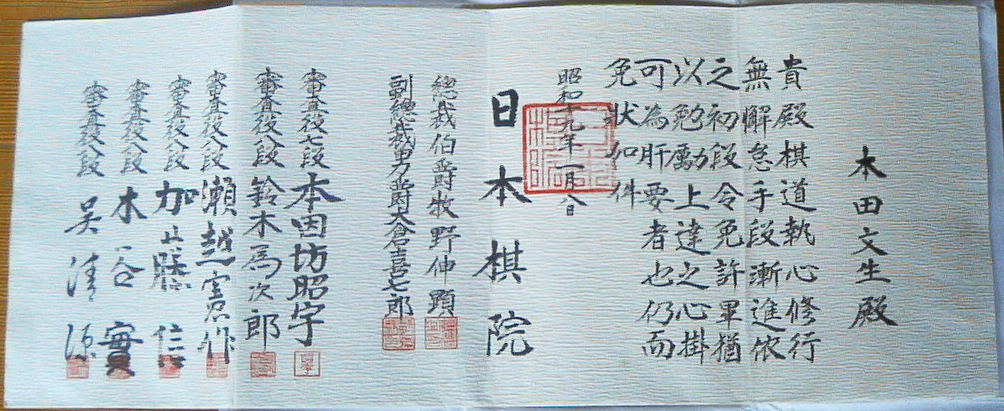 本田文生殿
貴殿棋道執心修行
無懈怠手段漸進依
之初段令免許畢猶
以勉勵上達之心掛
可為肝要者也仍而
免狀如件
昭和十九年一月八日
日本棋院
總裁伯爵牧野伸顕
副總裁男爵大倉喜七郎
審査役七段本因坊昭宇
審査役八段鈴木為次郎
審査役八段瀬越憲作
審査役八段加藤信
審査役八段木谷實
審査役八段吳清源